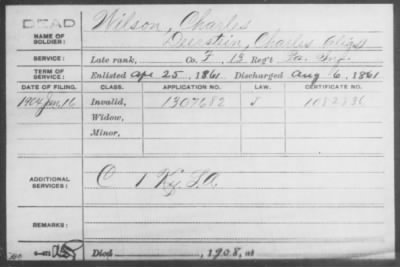 DEAD
NAME OF SOLDIER: Wilson, Charles
Charles alias
SERVICE: Late rank, Co. I, 13 Reg't Pa. Inf.
TERM OF SERVICE: Enlisted Apr 25, 1861 Discharged Aug 6, 1861
DATE OF FILING. CLASS. APPLICATION NO. LAW. CERTIFICATE NO.
1904 Jan 16 Invalid, 1307682 J 1082836
Widow,
Minor,
ADDITIONAL SERVICES: C 1 Ky. L.A.
REMARKS:
Died , 1908, at